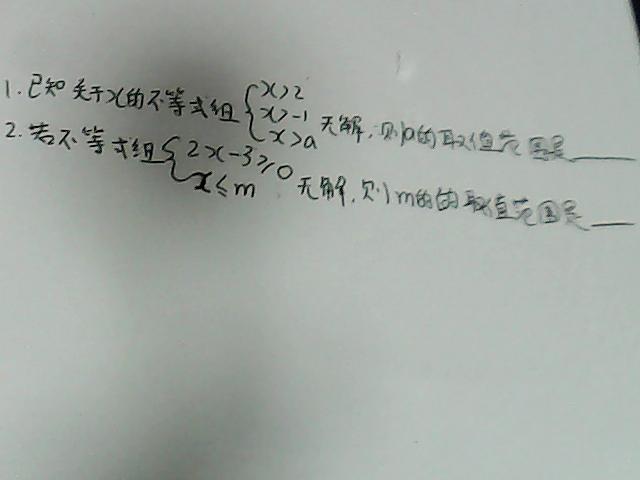 1.已知关于x的不等式组{x>2
x>-1
x>a 无解,则a的取值范围是____
2.若不等式组{2x-3≥0
x≤m 无解,则m的的取值范围是____